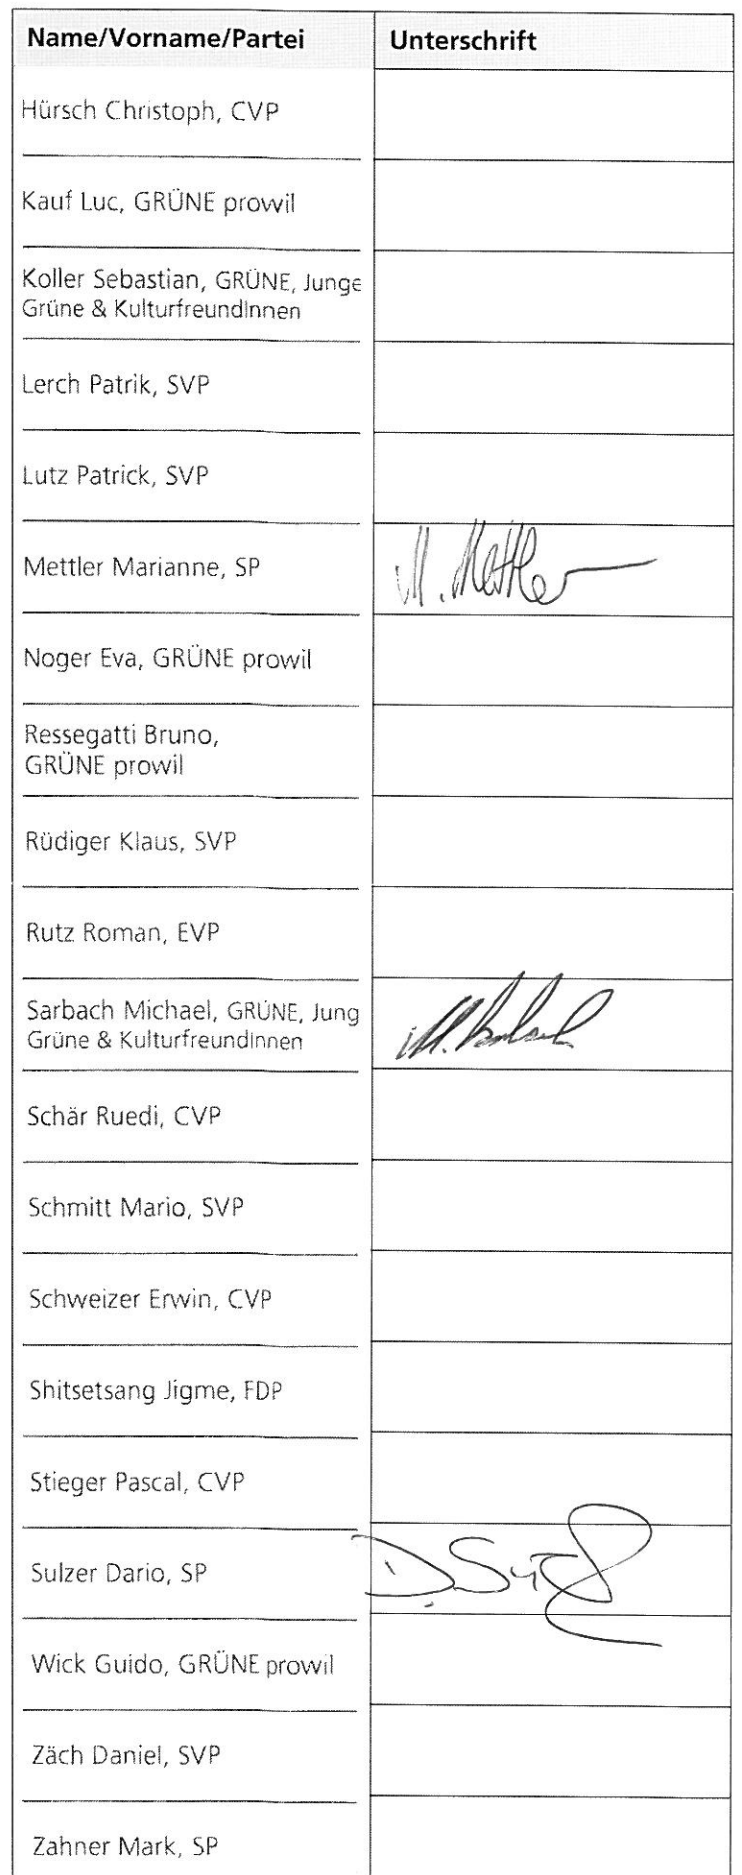 Name/Vorname/Partei Unterschrift
Hürsch Christoph, CVP
Kauf Luc, GRÜNE prowil
Koller Sebastian, GRÜNE, Junge
Grüne & KulturfreundInnen
Lerch Patrik, SVP
Lutz Patrick, SVP
Mettler Marianne, SP M. Mettler
Noger Eva, GRÜNE prowil
Ressegatti Bruno,
GRÜNE prowil
Rüdiger Klaus, SVP
Rutz Roman, EVP
Sarbach Michael, GRÜNE, Jung
Grüne & KulturfreundInnen
M. Sarbach
Schär Ruedi, CVP
Schmitt Mario, SVP
Schweizer Erwin, CVP
Shitsetsang Jigme, FDP
Stieger Pascal, CVP
Sulzer Dario, SP D. Sulzer
Wick Guido, GRÜNE prowil
Zäch Daniel, SVP
Zahner Mark, SP